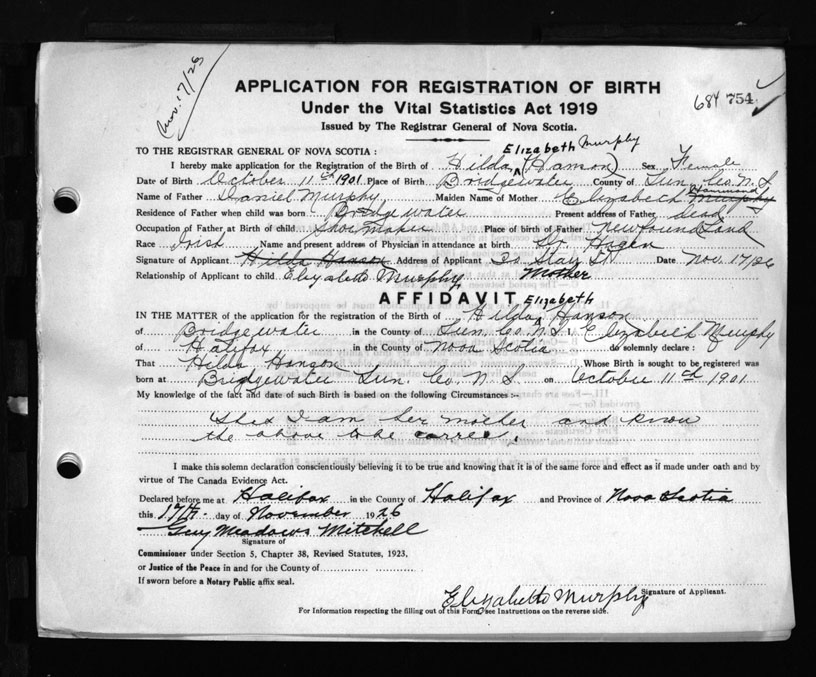 Nov. 17/26
APPLICATION FOR REGISTRATION OF BIRTH
684 754
Under the Vital Statistics Act 1919
Issued by The Registrar General of Nova Scotia.
TO THE REGISTRAR GENERAL OF NOVA SCOTIA :
Elizabeth Murphy
I hereby make application for the Registration of the Birth of Hilda (Hanson) Sex Female
Date of Birth October 11th 1901 Place of Birth Bridgewater County of Lun. Co. N.S
Hammond
Name of Father Daniel Murphy Maiden Name of Mother Elizabeth Murphy
Residence of Father when child was born Bridgewater Present address of Father dead
Occupation of Father at Birth of child Shoe maker Place of birth of Father Newfoundland
Race Irish Name and present address of Physician in attendance at birth
Signature of Applicant Hilda Hanson Address of Applicant Date Nov. 17/26
Relationship of Applicant to child Elizabeth Murphy Mother
AFFIDAVIT
Elizabeth
IN THE MATTER of the application for the registration of the Birth of Hilda Hanson
of Bridgewater in the County of Lun. Co. N.S. I. Elizabeth Murphy
of Halifax in the County of Nova Scotia do solemnly declare :
That Hilda Hanson Whose Birth is sought to be registered was
born at Bridgewater Lun. Co. N.S on October 11th 1901
My knowledge of the fact and date of such Birth is based on the following Circumstances :—
I am her mother and know
the above to be correct.
I make this solemn declaration conscientiously believing it to be true and knowing that it is of the same force and effect as if made under oath and by
virtue of The Canada Evidence Act.
Declared before me at Halifax in the County of Halifax and Province of Nova Scotia
this 17th day of November 1926
Guy Meadows Mitchell
Signature of
Commissioner under Section 5, Chapter 38, Revised Statutes, 1923,
or Justice of the Peace in and for the County of
If sworn before a Notary Public affix seal.
Elizabeth Murphy Signature of Applicant.
For Information respecting the filling out of this Form, see Instructions on the reverse side.